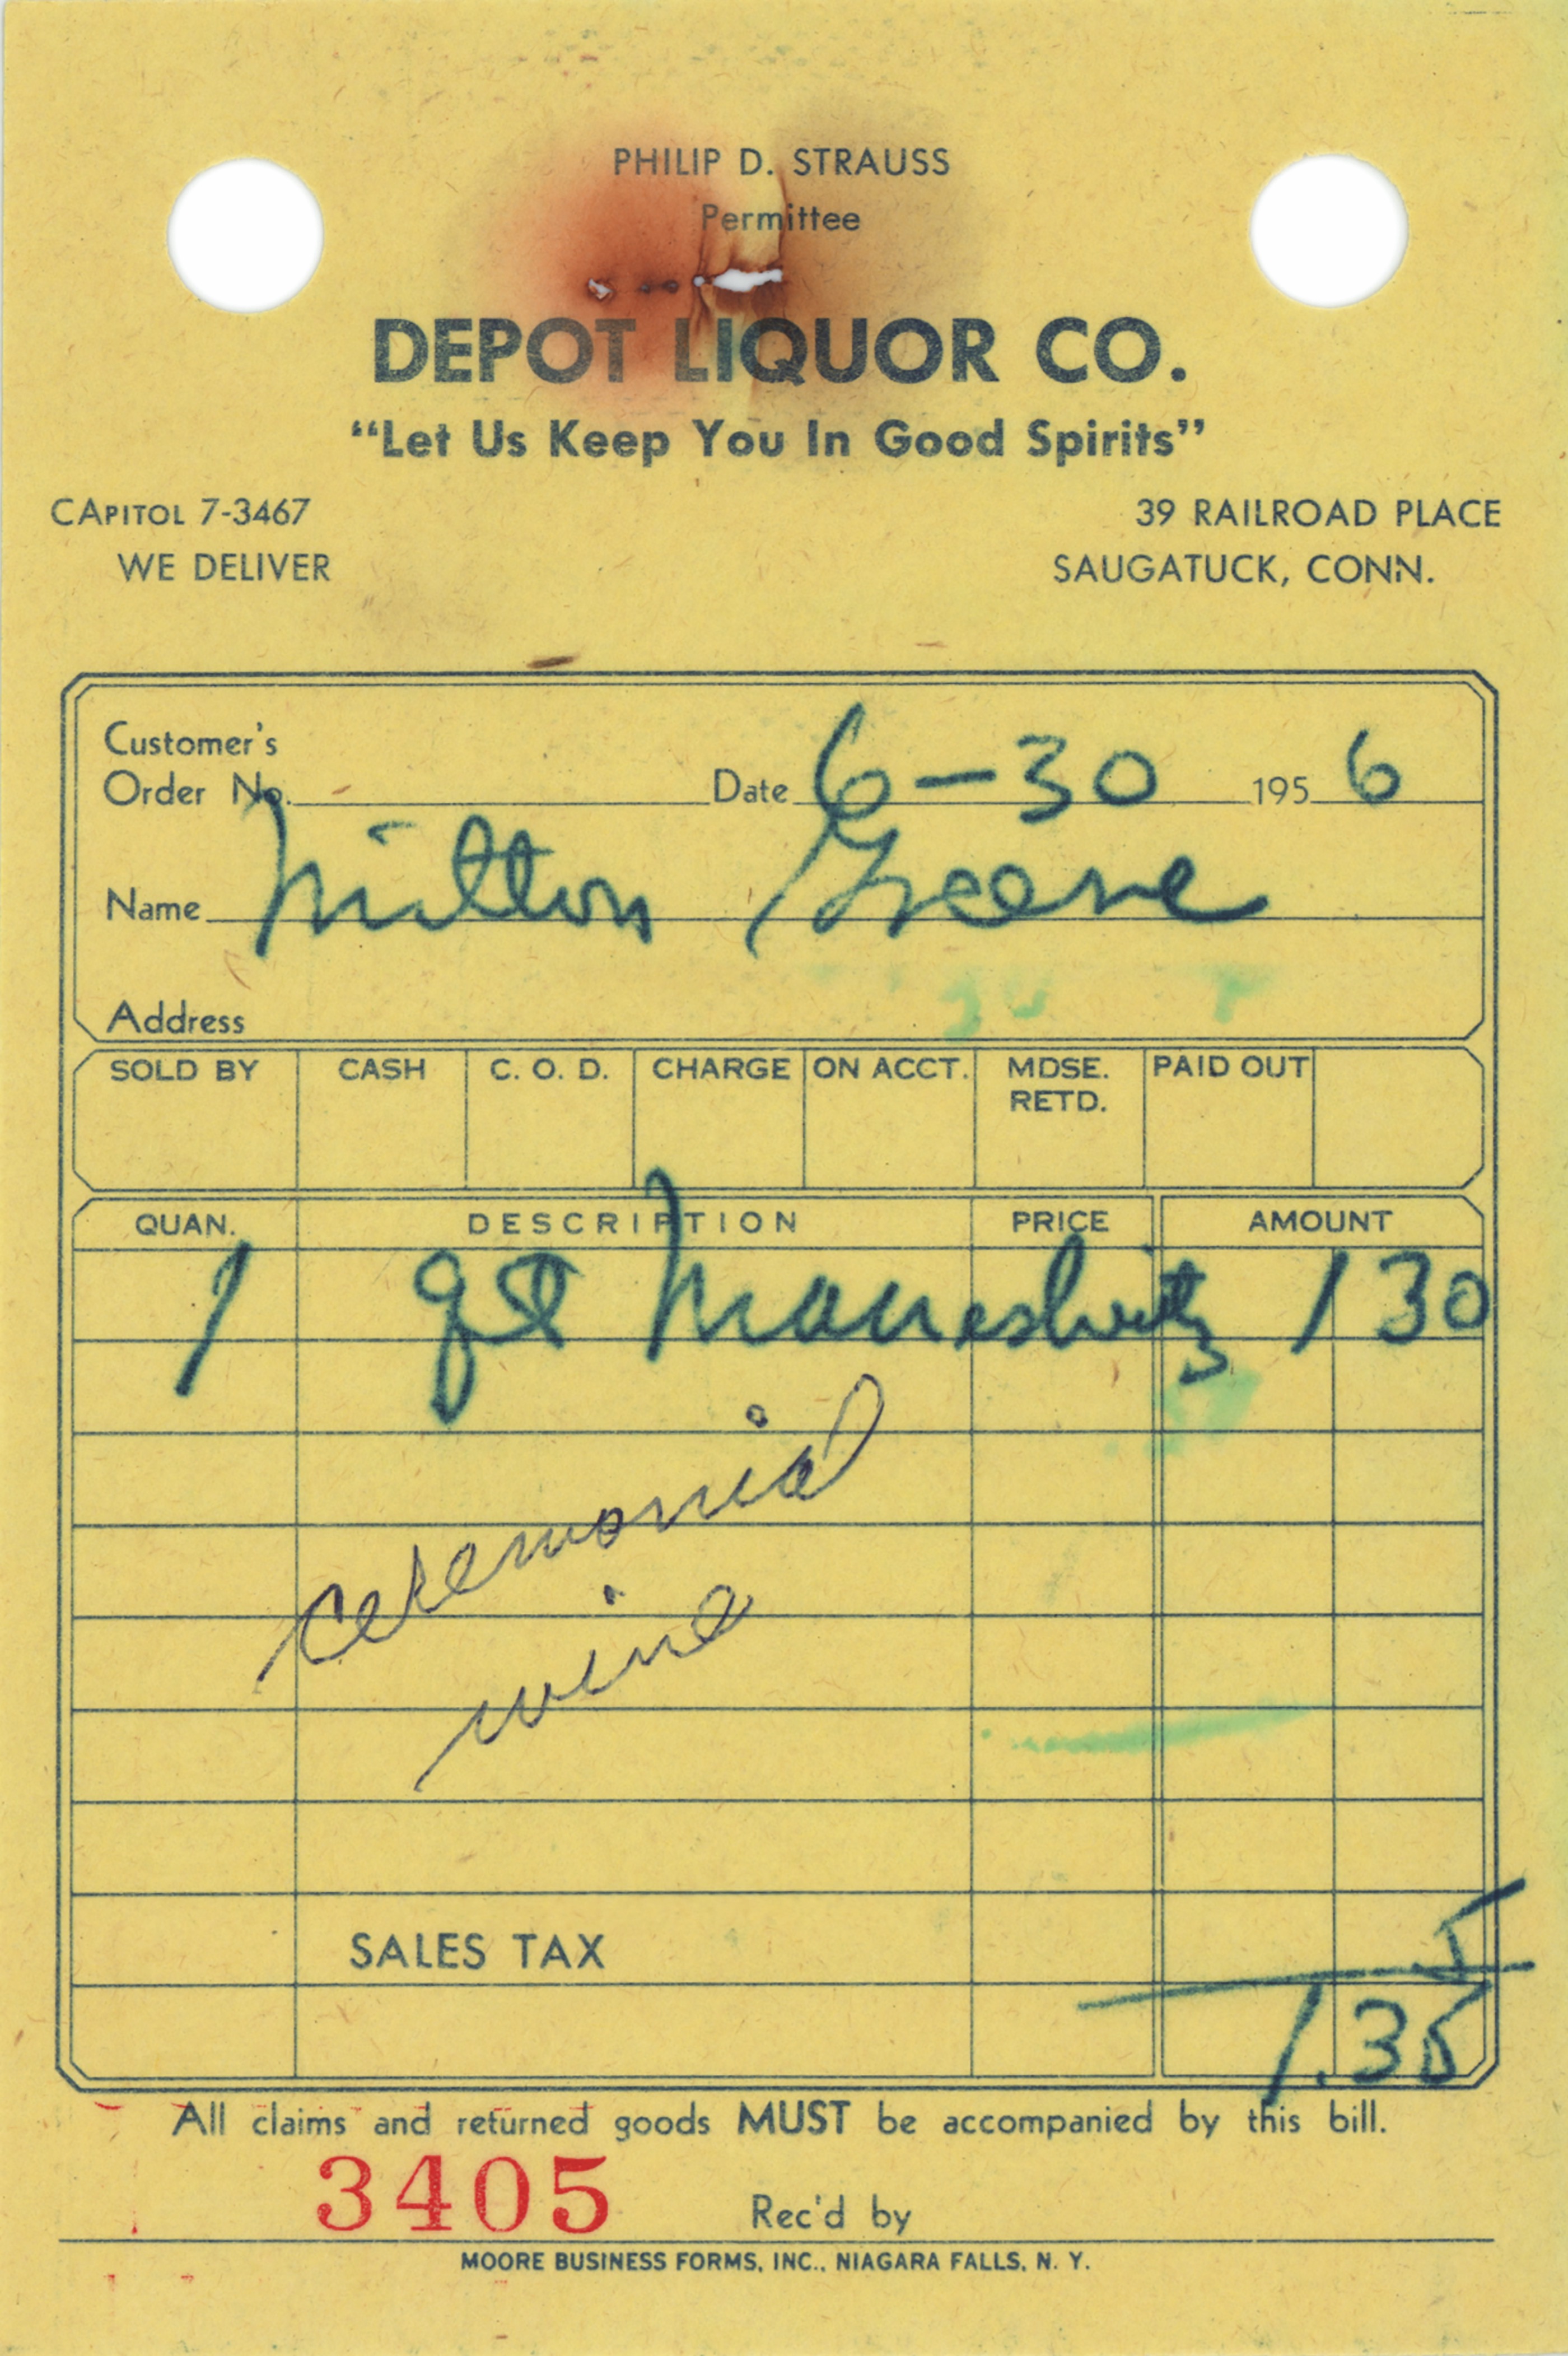 PHILIP D. STRAUSS
Permittee
DEPOT LIQUOR CO.
“Let Us Keep You In Good Spirits”
CAPITOL 7-3467
39 RAILROAD PLACE
WE DELIVER
SAUGATUCK, CONN.
Customer's
Order No. Date 6-30 1956
Name Milton Greene
Address
SOLD BY CASH C. O. D. CHARGE ON ACCT. MDSE. RETD. PAID OUT
QUAN. DESCRIPTION PRICE AMOUNT
1 qt Maneshvitz 1 30
ceremonial
wine
SALES TAX 5
1.35
All claims and returned goods MUST be accompanied by this bill.
3405 Rec'd by
MOORE BUSINESS FORMS, INC., NIAGARA FALLS, N. Y.